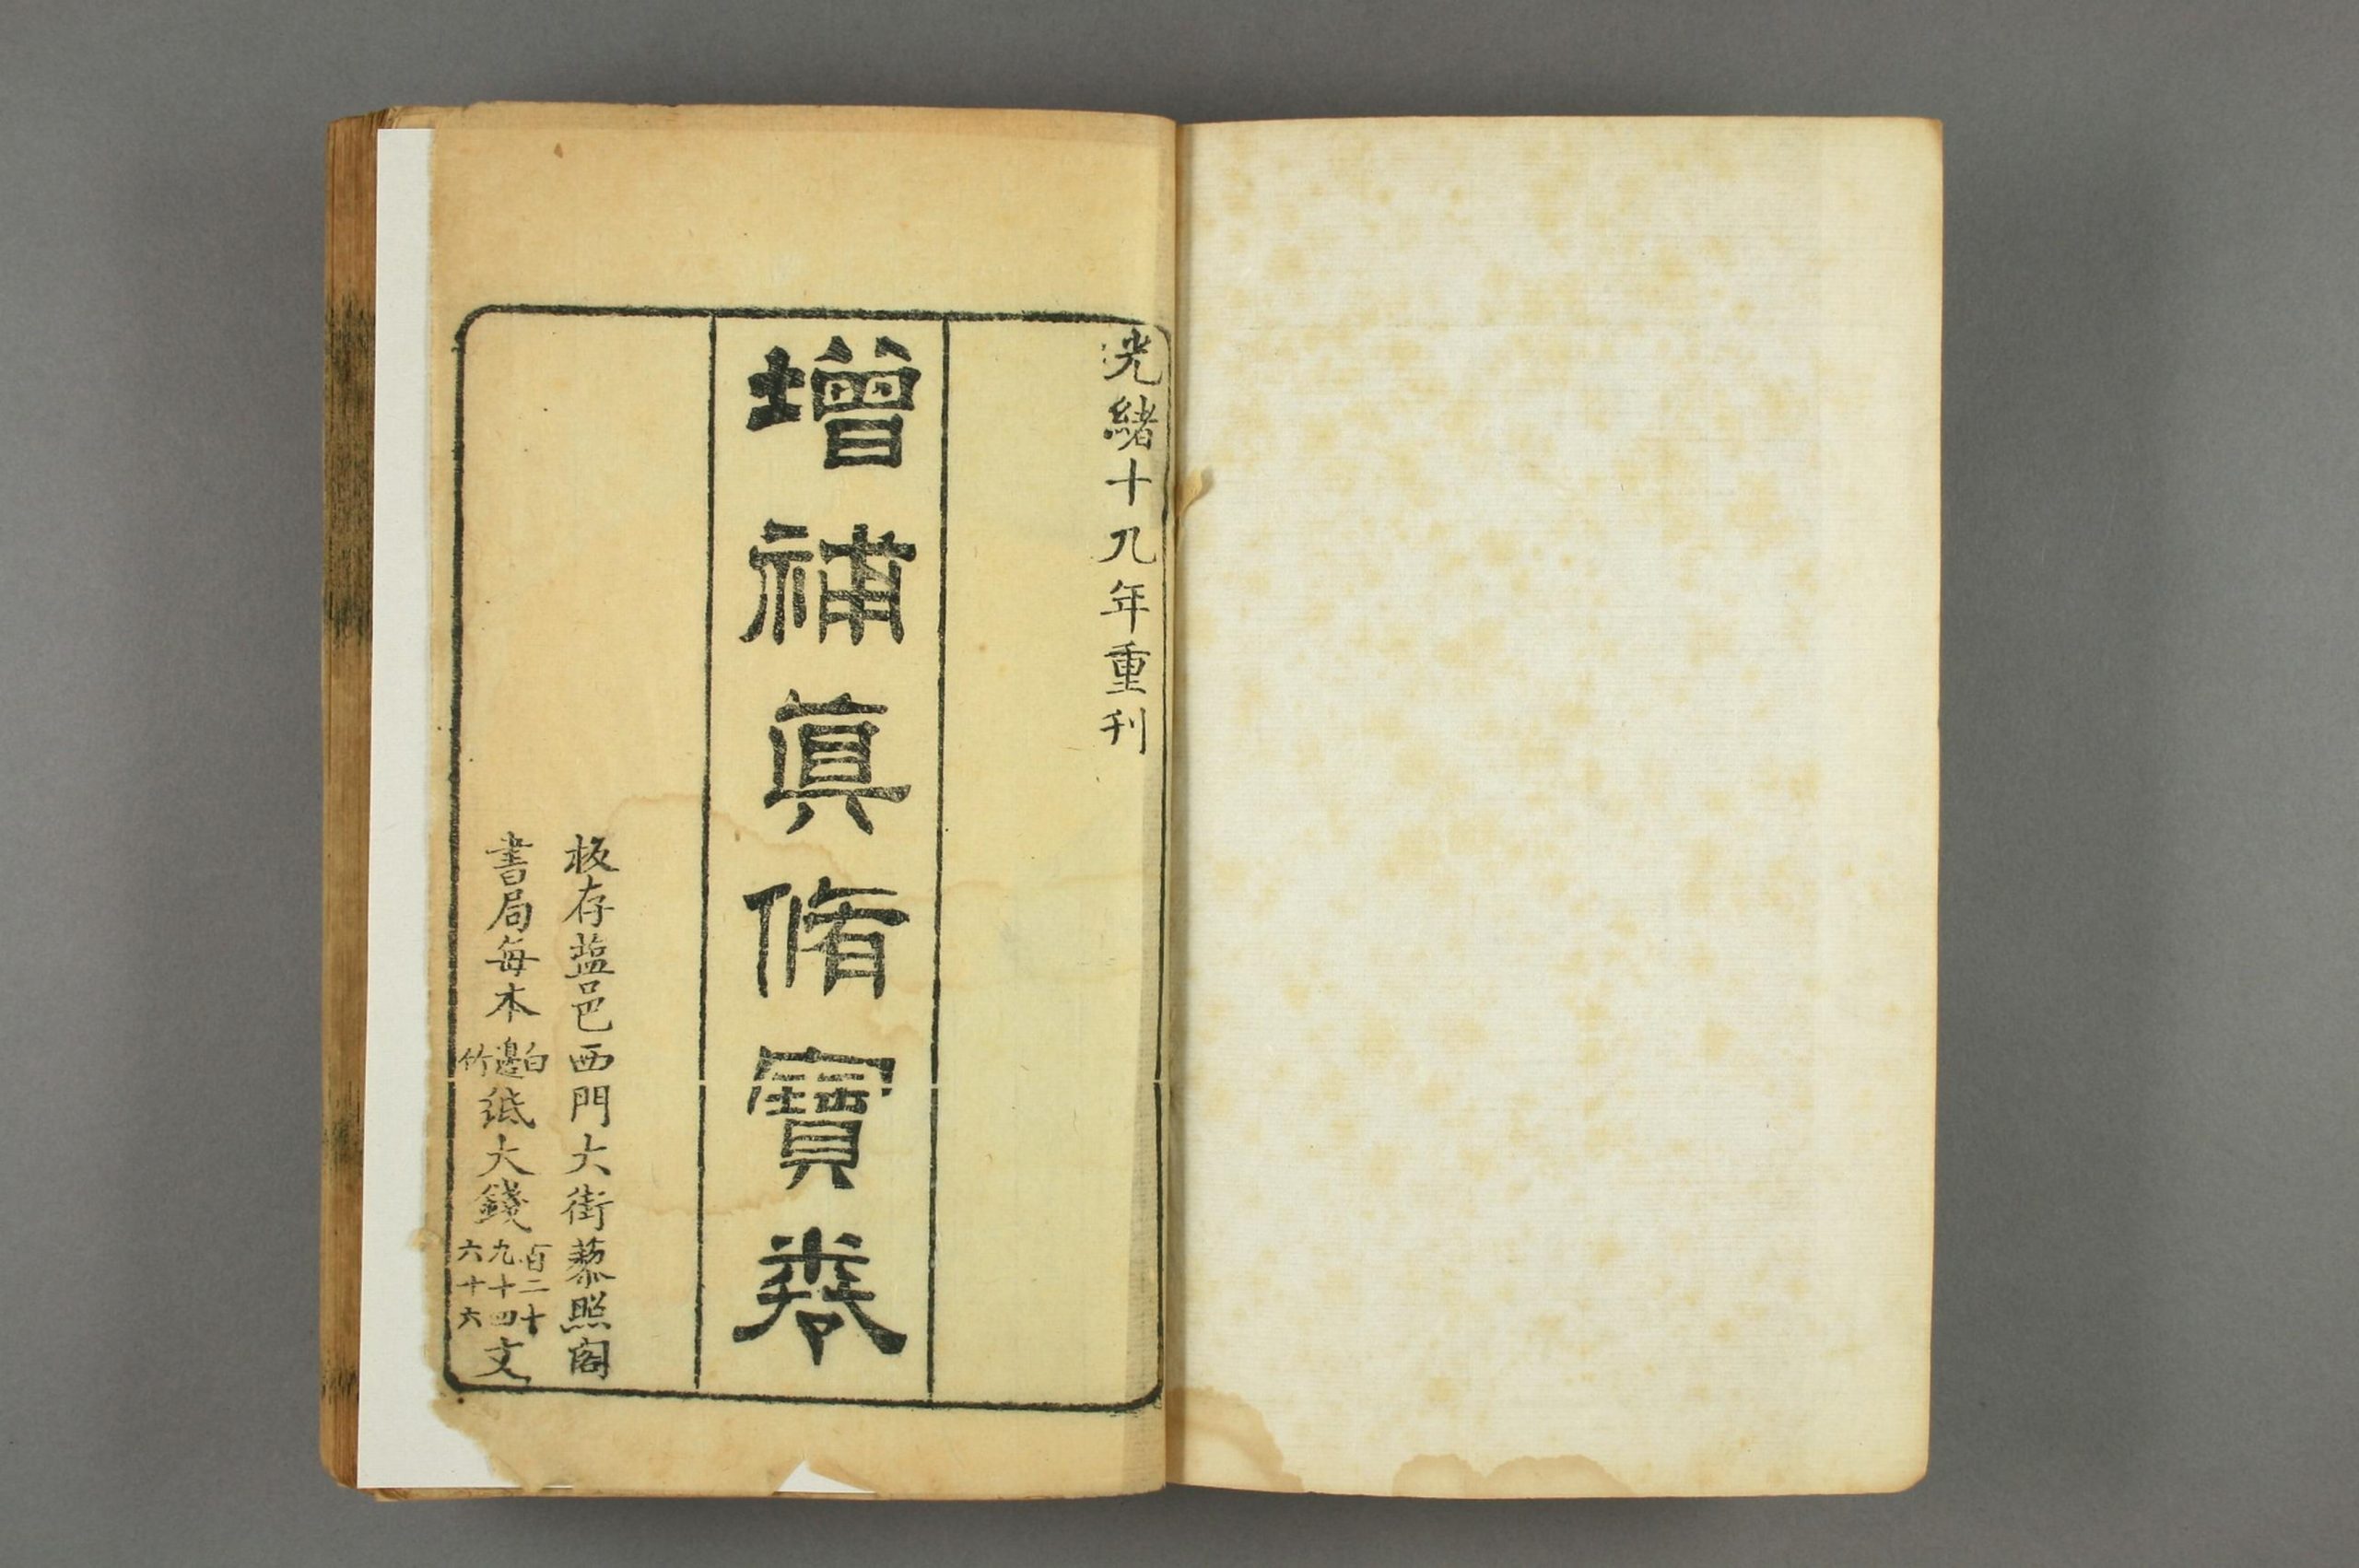 光緒十九年重刊
增補眞脩寶卷
板存藍邑西門大街藜照閣
書局每本白邊竹紙大錢百二十九十四六十六文